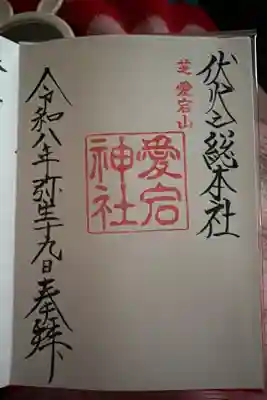 伏火之総本社
芝 愛宕山
愛宕神社
令和八年 弥生十九日 奉拝